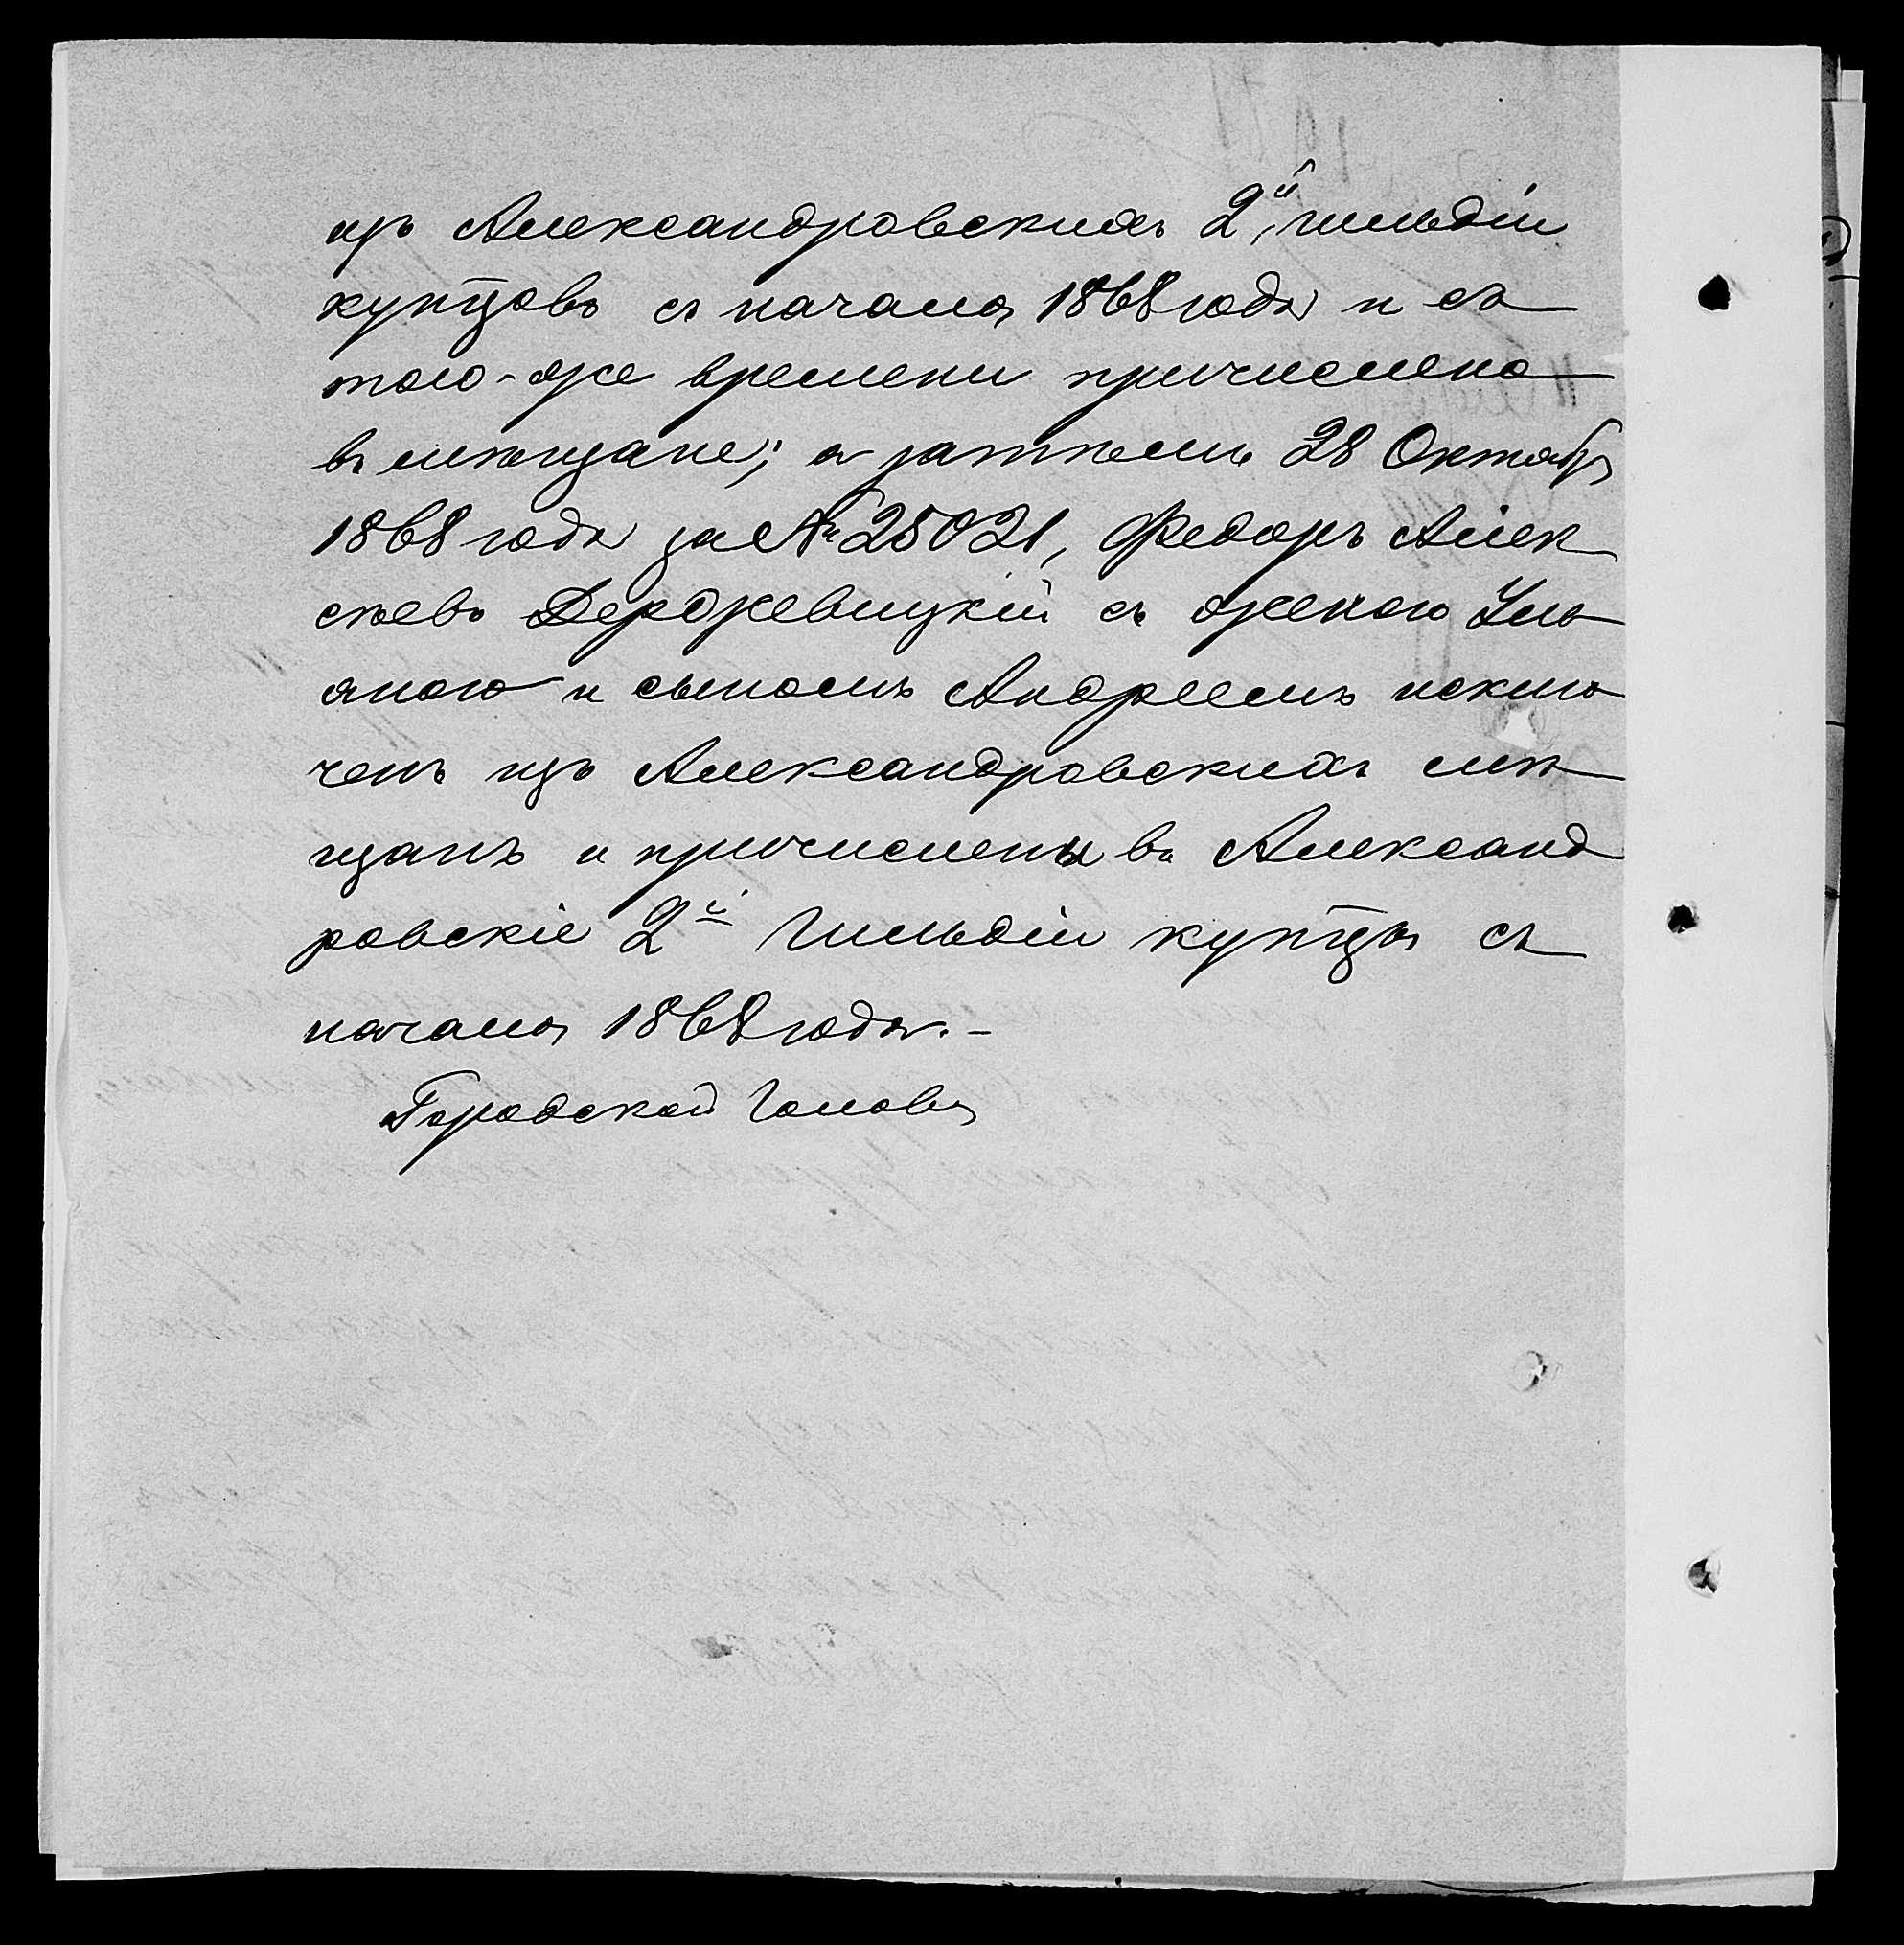 изъ Александровскихъ 2й гильдіи
купцовъ съ начала 1868 года и съ
того-же времени причислена
въ мѣщане; а затѣмъ 28 Октября
1868 года за № 25021, Федоръ Алек
сѣевъ Держевицкій съ женою Уль
яною и сыномъ Андреемъ исклю
ченъ изъ Александровскихъ мѣ
щанъ и причислены въ Александ
ровскіе 2й Гильдіи купцы съ
начала 1868 года.-
Городской Голова